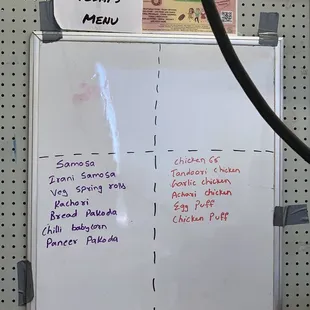 MENU
Samosa
Irani Samosa
Veg Spring rolls
Kachori
Bread Pakoda
Chilli babycorn
Paneer Pakoda
Chicken 65
Tandoori chicken
Garlic chicken
Achari chicken
Egg Puff
Chicken Puff